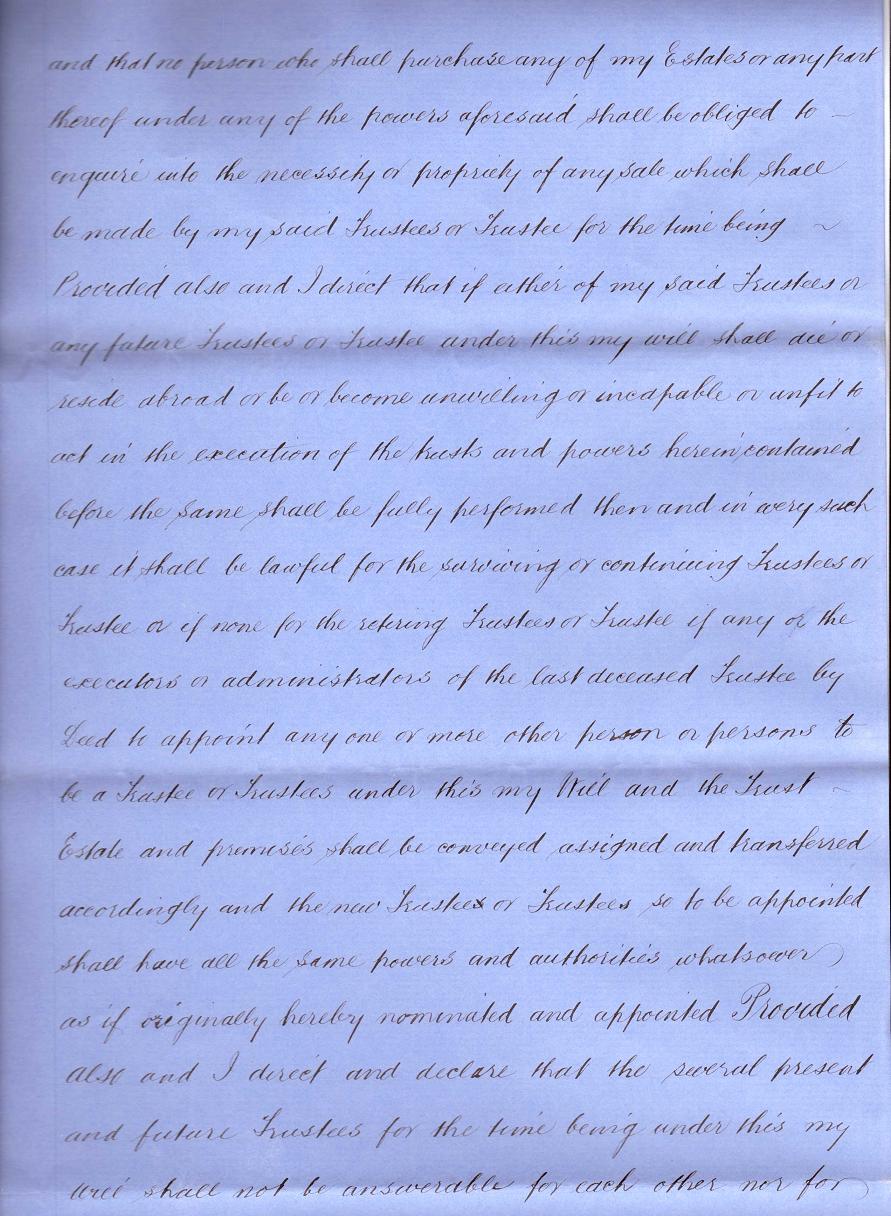 and that no person who shall purchase any of my Estates or any part
thereof under any of the powers aforesaid shall be obliged to ~
enquire into the necessity or propriety of any sale which shall
be made by my said Trustees or Trustee for the time being ~
Provided also and I direct that if either of my said Trustees or
any future Trustees or Trustee under this my will shall die or
reside abroad or be or become unwilling or incapable or unfit to
act in the execution of the trusts and powers herein contained
before the same shall be fully performed then and in every such
case it shall be lawful for the surviving or continuing Trustees or
Trustee or if none for the retiring Trustees or Trustee if any or the
executors or administrators of the last deceased Trustee by
Deed to appoint any one or more other person or persons to
be a Trustee or Trustees under this my Will and the Trust ~
Estate and premises shall be conveyed assigned and transferred
accordingly and the new Trustee or Trustees so to be appointed
shall have all the same powers and authorities whatsoever
as if originally hereby nominated and appointed Provided
also and I direct and declare that the several present
and future Trustees for the time being under this my
Will shall not be answerable for each other nor for